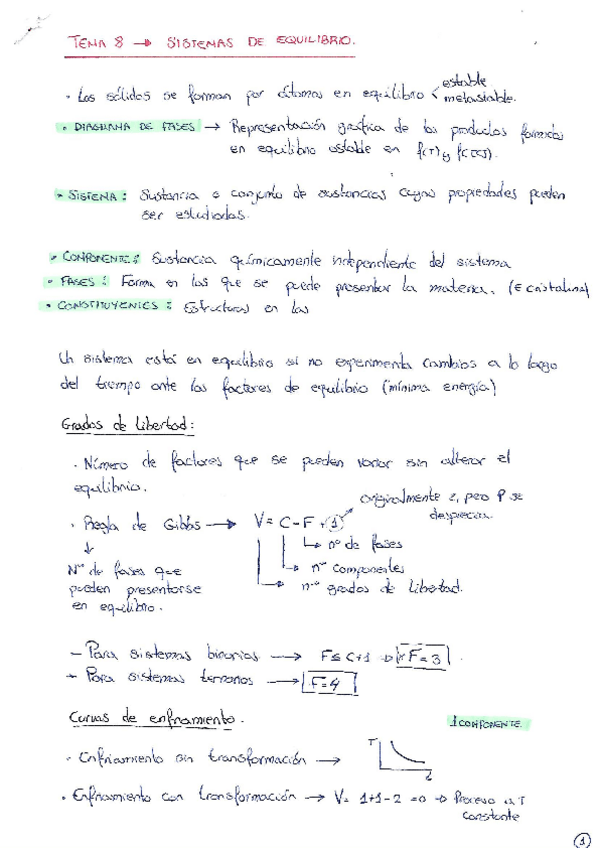 TEMA 8 → SISTEMAS DE EQUILIBRIO.
· Los sólidos se forman por átomos en equilibrio < estable
metaestable.
· DIAGRAMA DE FASES → Representación gráfica de los productos formados
en equilibrio estable en f(T) y
· SISTEMA: Sustancia o conjunto de sustancias cuyas propiedades pueden
ser estudiadas.
· COMPONENTE: Sustancia químicamente independiente del sistema
· FASES: Forma en las que se puede presentar la materia. (E cristalina)
· CONSTITUYENTES: Estructuras en las
Un sistema está en equilibrio si no experimenta cambios a lo largo
del tiempo ante los factores de equilibrio (mínima energía)
Grados de libertad:
· Número de factores que se pueden variar sin alterar el
equilibrio.
originalmente 2, pero P se
desprecia.
· Regla de Gibbs → V = C - F + 1
↓
Nº de fases que
pueden presentarse
en equilibrio.
nº de fases
nº componentes
nº grados de libertad.
- Para sistemas binarios → F≤C+1 → F=3
- Para sistemas ternarios → F=4
Curvas de enfriamiento.
1 COMPONENTE
· Enfriamiento sin transformación →
T
· Enfriamiento con transformación → V= 1+1-2 =0 → Proceso a T
constante
1